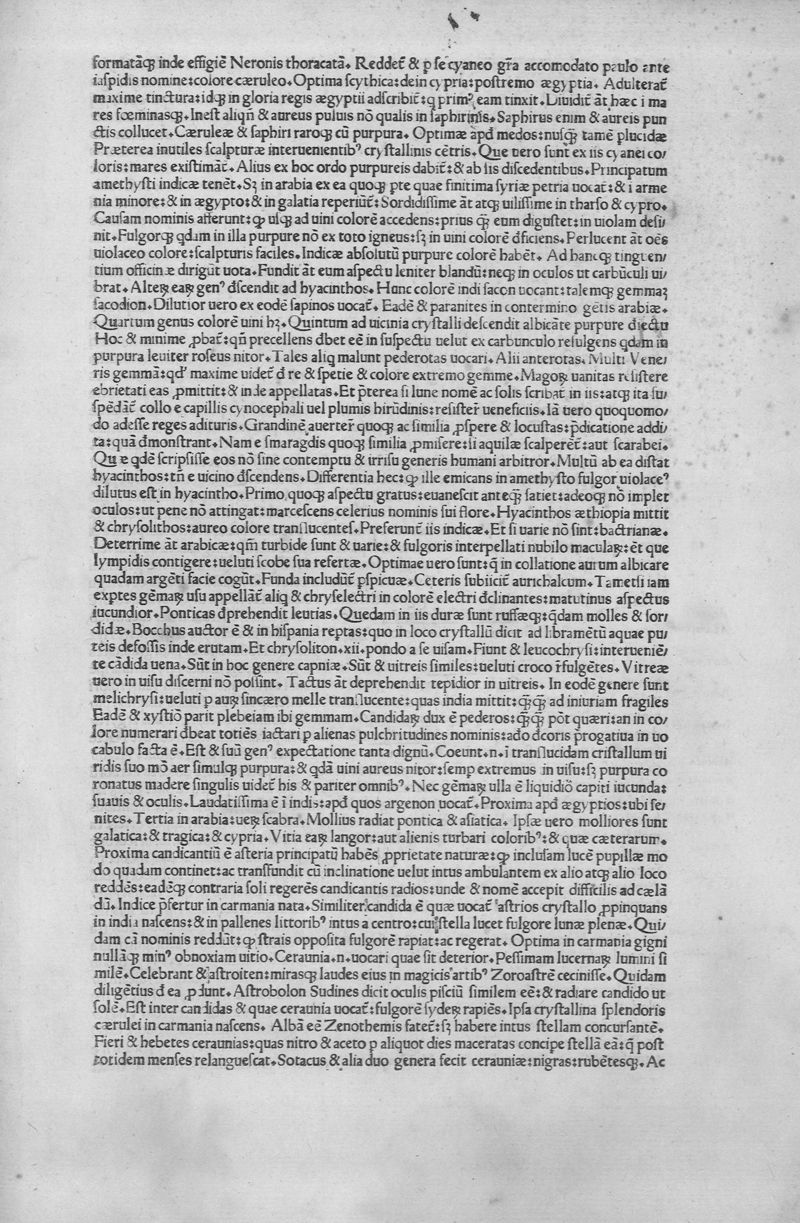 formatāꝗ inde effigiē Neronis thoracatā. Reddet̄ & ꝑ se cyaneo gr̄a accomodato paulo ante
iaspidis nomine: colore cæruleo. Optima scythica: dein cypria: postremo ægyptia. Adulterat̄
maxime tinctura: idꝗ in gloria regis ægyptii adscribit̄: q prim⁹ eam tinxit. Diuidit̄ āt hæc i ma
res fœminasꝗ. Inest aliqn̄ & aureus puluis nō qualis in saphirinis. Saphirus enim & aureis pun
ctis collucet. Cæruleæ & saphiri raroꝗ cū purpura. Optimæ apd̄ medos: nusꝗ̄ tamē plucidæ
Præterea inutiles scalpturæ interuenientib⁹ crystallinis cētris. Que uero sunt ex iis cyanei co/
loris: mares existimāt̄. Alius ex hoc ordo purpureis dabit̄: & ab iis discedentibus. Principatum
amethysti indicæ tenēt. Sꝫ in arabia ex ea quoꝗ pte quae finitima syriæ petria uocat̄: & i arme
nia minore: & in ægypto: & in galatia reperiūt̄. Sordidissime āt atꝗ uilissime in tharso & cypro.
Causam nominis afferunt: ꝙ usꝗ ad uini colorē accedens: prius ꝗ̄ eum digustet: in uiolam desi/
nit. Fulgorꝗ qdam in illa purpure nō ex toto igneus: sꝫ in uini colorē d̄ficiens. Perlucent āt oēs
uiolaceo colore: scalpturis faciles. Indicæ absolutū purpure colorē habēt. Ad hancꝗ tinguen/
tium officinæ dirigūt uota. Fundit āt eum aspectu leniter blandū: neꝗ in oculos ut carbūculi ui/
brat. Alteꝝ eaꝝ gen⁹ d̄scendit ad hyacinthos. Hunc colorē indi sacon uocant: talemꝗ gemmaꝫ
sacodion. Dilutior uero ex eodē sapinos uocat̄. Eadē & paranites in contermino gētis arabiæ.
Quartum genus colorē uini hꝫ. Quintum ad uicinia crystalli descendit albicāte purpure diectu
Hoc & minime ꝓbat̄: qn̄ precellens d̄bet eē in suspectu uelut ex carbunculo refulgens qdam in
purpura leuiter roseus nitor. Tales aliq malunt pederotas uocari. Alii anterotas. Multi Vene/
ris gemmā: qd⁹ maxime uidet̄ d̄re & spetie & colore extremo gemme. Magoꝝ uanitas resistere
ebrietati eas ꝓmittit: & inde appellatas. Et p̄terea si lune nomē ac solis scribat̄ in iis: atꝗ ita su/
spēdāt̄ collo e capillis cynocephali uel plumis hirūdinis: resister̄ ueneficiis. Iā uero quoquomo/
do adesse reges adituris. Grandinē auerter̄ quoꝗ ac similia ꝓspere & locustas: p̄dicatione addi/
ta: quā d̄monstrant. Nam e smaragdis quoꝗ similia ꝓmisere: si aquilæ scalperēt̄: aut scarabei.
Quæ qdē scripsisse eos nō sine contemptu & irrisu generis humani arbitror. Multū ab ea distat
hyacinthos: tn̄ e uicino d̄scendens. Differentia hec: ꝙ ille emicans in amethysto fulgor uiolace⁹
dilutus est in hyacintho. Primo quoꝗ aspectu gratus: euanescit anteꝗ̄ satiet: adeoꝗ nō implet
oculos: ut pene nō attingat: marcescens celerius nominis sui flore. Hyacinthos æthiopia mittit
& chrysolithos: aureo colore translucentes. Preferunt̄ iis indicæ. Et si uarie nō sint: bactrianæ.
Deterrime āt arabicæ: qm̄ turbide sunt & uarie: & fulgoris interpellati nubilo maculaꝝ: ēt que
lympidis contigere: ueluti scobe sua refertæ. Optimae uero sunt: q̄ in collatione aurum albicare
quadam argēti facie cogūt. Funda includūt̄ pspicuæ. Ceteris subiicit̄ aurichalcum. Tametsi iam
exptes gēmaꝝ usu appellāt̄ aliq & chryselectri in colorē electri d̄clinantes: matutinus aspectus
iucundior. Ponticas d̄prehendit leuitas. Quedam in iis duræ sunt ruffæꝗ: qdam molles & sor/
didæ. Bocchus auctor ē & in hispania reptas: quo in loco crystallū dicit ad libramētū aquae pu/
teis defossis inde erutam. Et chrysoliton .xii. pondo a se uisam. Fiunt & leucochrysi: interueniē/
te cādida uena. Sūt in hoc genere capniæ. Sūt & uitreis similes: ueluti croco r̄fulgētes. Vitreæ
uero in uisu discerni nō possint. Tactus āt deprehendit tepidior in uitreis. In eodē genere sunt
melichrysi: ueluti p auꝝ sincæro melle translucente: quas india mittit: ꝗ̄ꝗ̄ ad iniuriam fragiles
Eadē & xystiō parit plebeiam ibi gemmam. Candidaꝝ dux ē pederos: ꝗ̄ꝗ̄ pōt quæri: an in co/
lore numerari d̄beat toties iactari p alienas pulchritudines nominis: ado d̄coris p̄rogatiua in uo
cabulo facta ē. Est & suū gen⁹ expectatione tanta dignū. Coeunt .n. ī translucidam cristallum ui
ridis suo mō aer simulꝗ purpura: & qdā uini aureus nitor: semp extremus in uisu: sꝫ purpura co
ronatus madere singulis uidet̄ his & pariter omnib⁹. Nec gēmaꝝ ulla ē liquidiō capiti iucunda:
suauis & oculis. Laudatissima ē ī indis: apd̄ quos argenon uocat̄. Proxima apd̄ ægyptios: ubi se/
nites. Tertia in arabia: ueꝝ scabra. Mollius radiat pontica & asiatica. Ipsæ uero molliores sunt
galatica: & tragica: & cypria. Vitia eaꝝ langor: aut alienis turbari colorib⁹: & quæ cæterarum.
Proxima candicantiū ē asteria principatū habēs ꝓprietate naturæ: ꝙ inclusam lucē pupillæ mo
do quadam continet: ac transfundit cū inclinatione uelut intus ambulantem ex alio atꝗ alio loco
reddēs: eadēꝗ contraria soli regerēs candicantis radios: unde & nomē accepit difficilis ad cælā
dū. Indice p̄fertur in carmania nata. Similiter candida ē quæ uocat̄ astrios crystallo ꝓpinquans
in india nascens: & in pallenes littorib⁹ intus a centro: cui stella lucet fulgore lunæ plenæ. Qui/
dam cā nominis reddūt: ꝙ strais opposita fulgorē rapiat: ac regerat. Optima in carmania gigni
nullāꝗ min⁹ obnoxiam uitio. Ceraunia .n. uocari quae sit deterior. Pessimam lucernaꝝ lumini si
milē. Celebrant & astroiten: mirasꝗ laudes eius in magicis artib⁹ Zoroastrē cecinisse. Quidam
diligētius d̄ ea ꝓdunt. Astrobolon Sudines dicit oculis pisciū similem eē: & radiare candido ut
solē. Est inter candidas & quae ceraunia uocat̄: fulgorē syderꝝ rapiēs. Ipsa crystallina splendoris
cærulei in carmania nascens. Albā eē Zenothemis fatet̄: sꝫ habere intus stellam concursantē.
Fieri & hebetes ceraunias: quas nitro & aceto p aliquot dies maceratas concipe stellā eā: q̄ post
totidem menses relanguescat. Sotacus & alia duo genera fecit cerauniæ: nigras: rubētesꝗ. Ac